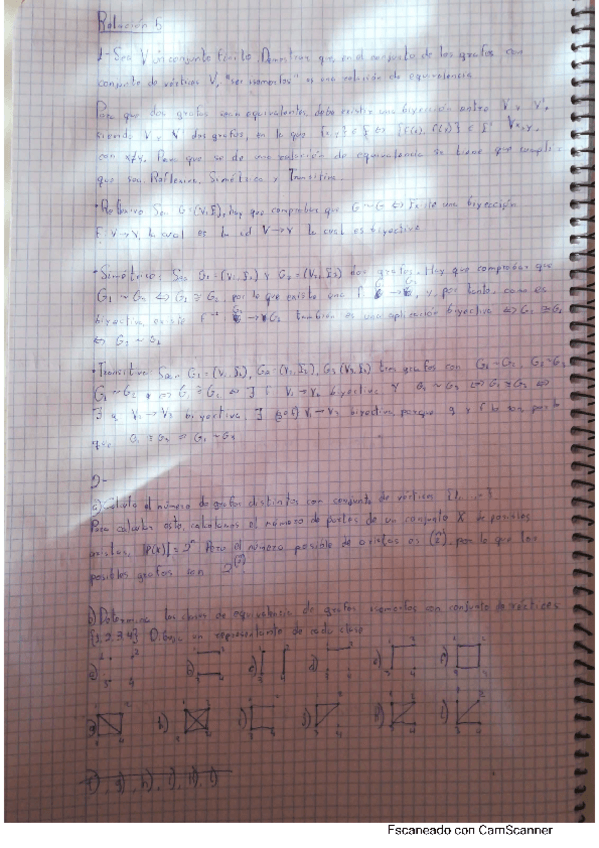 Relación 5
1- Sea V un conjunto finito. Demostrar que, en el conjunto de los grafos con
conjunto de vértices V, "ser isomorfos" es una relación de equivalencia
Para que dos grafos sean equivalentes debe existir una biyección entre V y V',
siendo V y V' dos grafos, en lo que
con x≠y. Para que se de una relación de equivalencia se tiene que cumplir
que sea Reflexiva, Simétrica y Transitiva.
· Reflexiva Sea G=(V,E), hay que comprobar que G~G ⇔ Existe una biyección
F: V→V, la cual es la id V→V la cual es biyectiva
· Simétrica: Sea G₁=(V₁,E₁) y G₂=(V₂,E₂) dos grafos. Hay que comprobar que
G₁~G₂ ⇔ G₁≅G₂, por lo que existe una f y, por tanto, como es
biyectiva, existe f⁻¹ también es una aplicación biyectiva ⇔ G₂≅G₁
⇔ G₂~G₁
· Transitiva Sea G₁=(V₁,E₁), G₂=(V₂,E₂), G₃(V₃,E₃) tres grafos con G₁~G₂, G₂~G₃
G₁~G₂ ⇔ G₁≅G₂ ⇔ ∃ f V₁→V₂ biyectiva y G₂~G₃ ⇔ G₂≅G₃ ⇔
∃ g V₂→V₃ biyectiva. ∃ (g∘f) V₁→V₃ biyectiva porque g y f lo son, por lo
que G₁≅G₃ ⇔ G₁~G₃
2-
a) Calcula el número de grafos distintos con conjunto de vértices
Para calcular esto, calculamos el número de partes de un conjunto X de posibles
aristas, |P(X)|=2ⁿ. Pero el número posible de aristas es (ⁿ₂), por lo que los
posibles grafos son
b) Determina las clases de equivalencia de grafos isomorfos con conjunto de vértices
{1,2,3,4}. Dibuja un representante de cada clase
a) b) c) d) e) f)
g) h) i) j) k) l)
f), g), h), i), k), l)
Escaneado con CamScanner